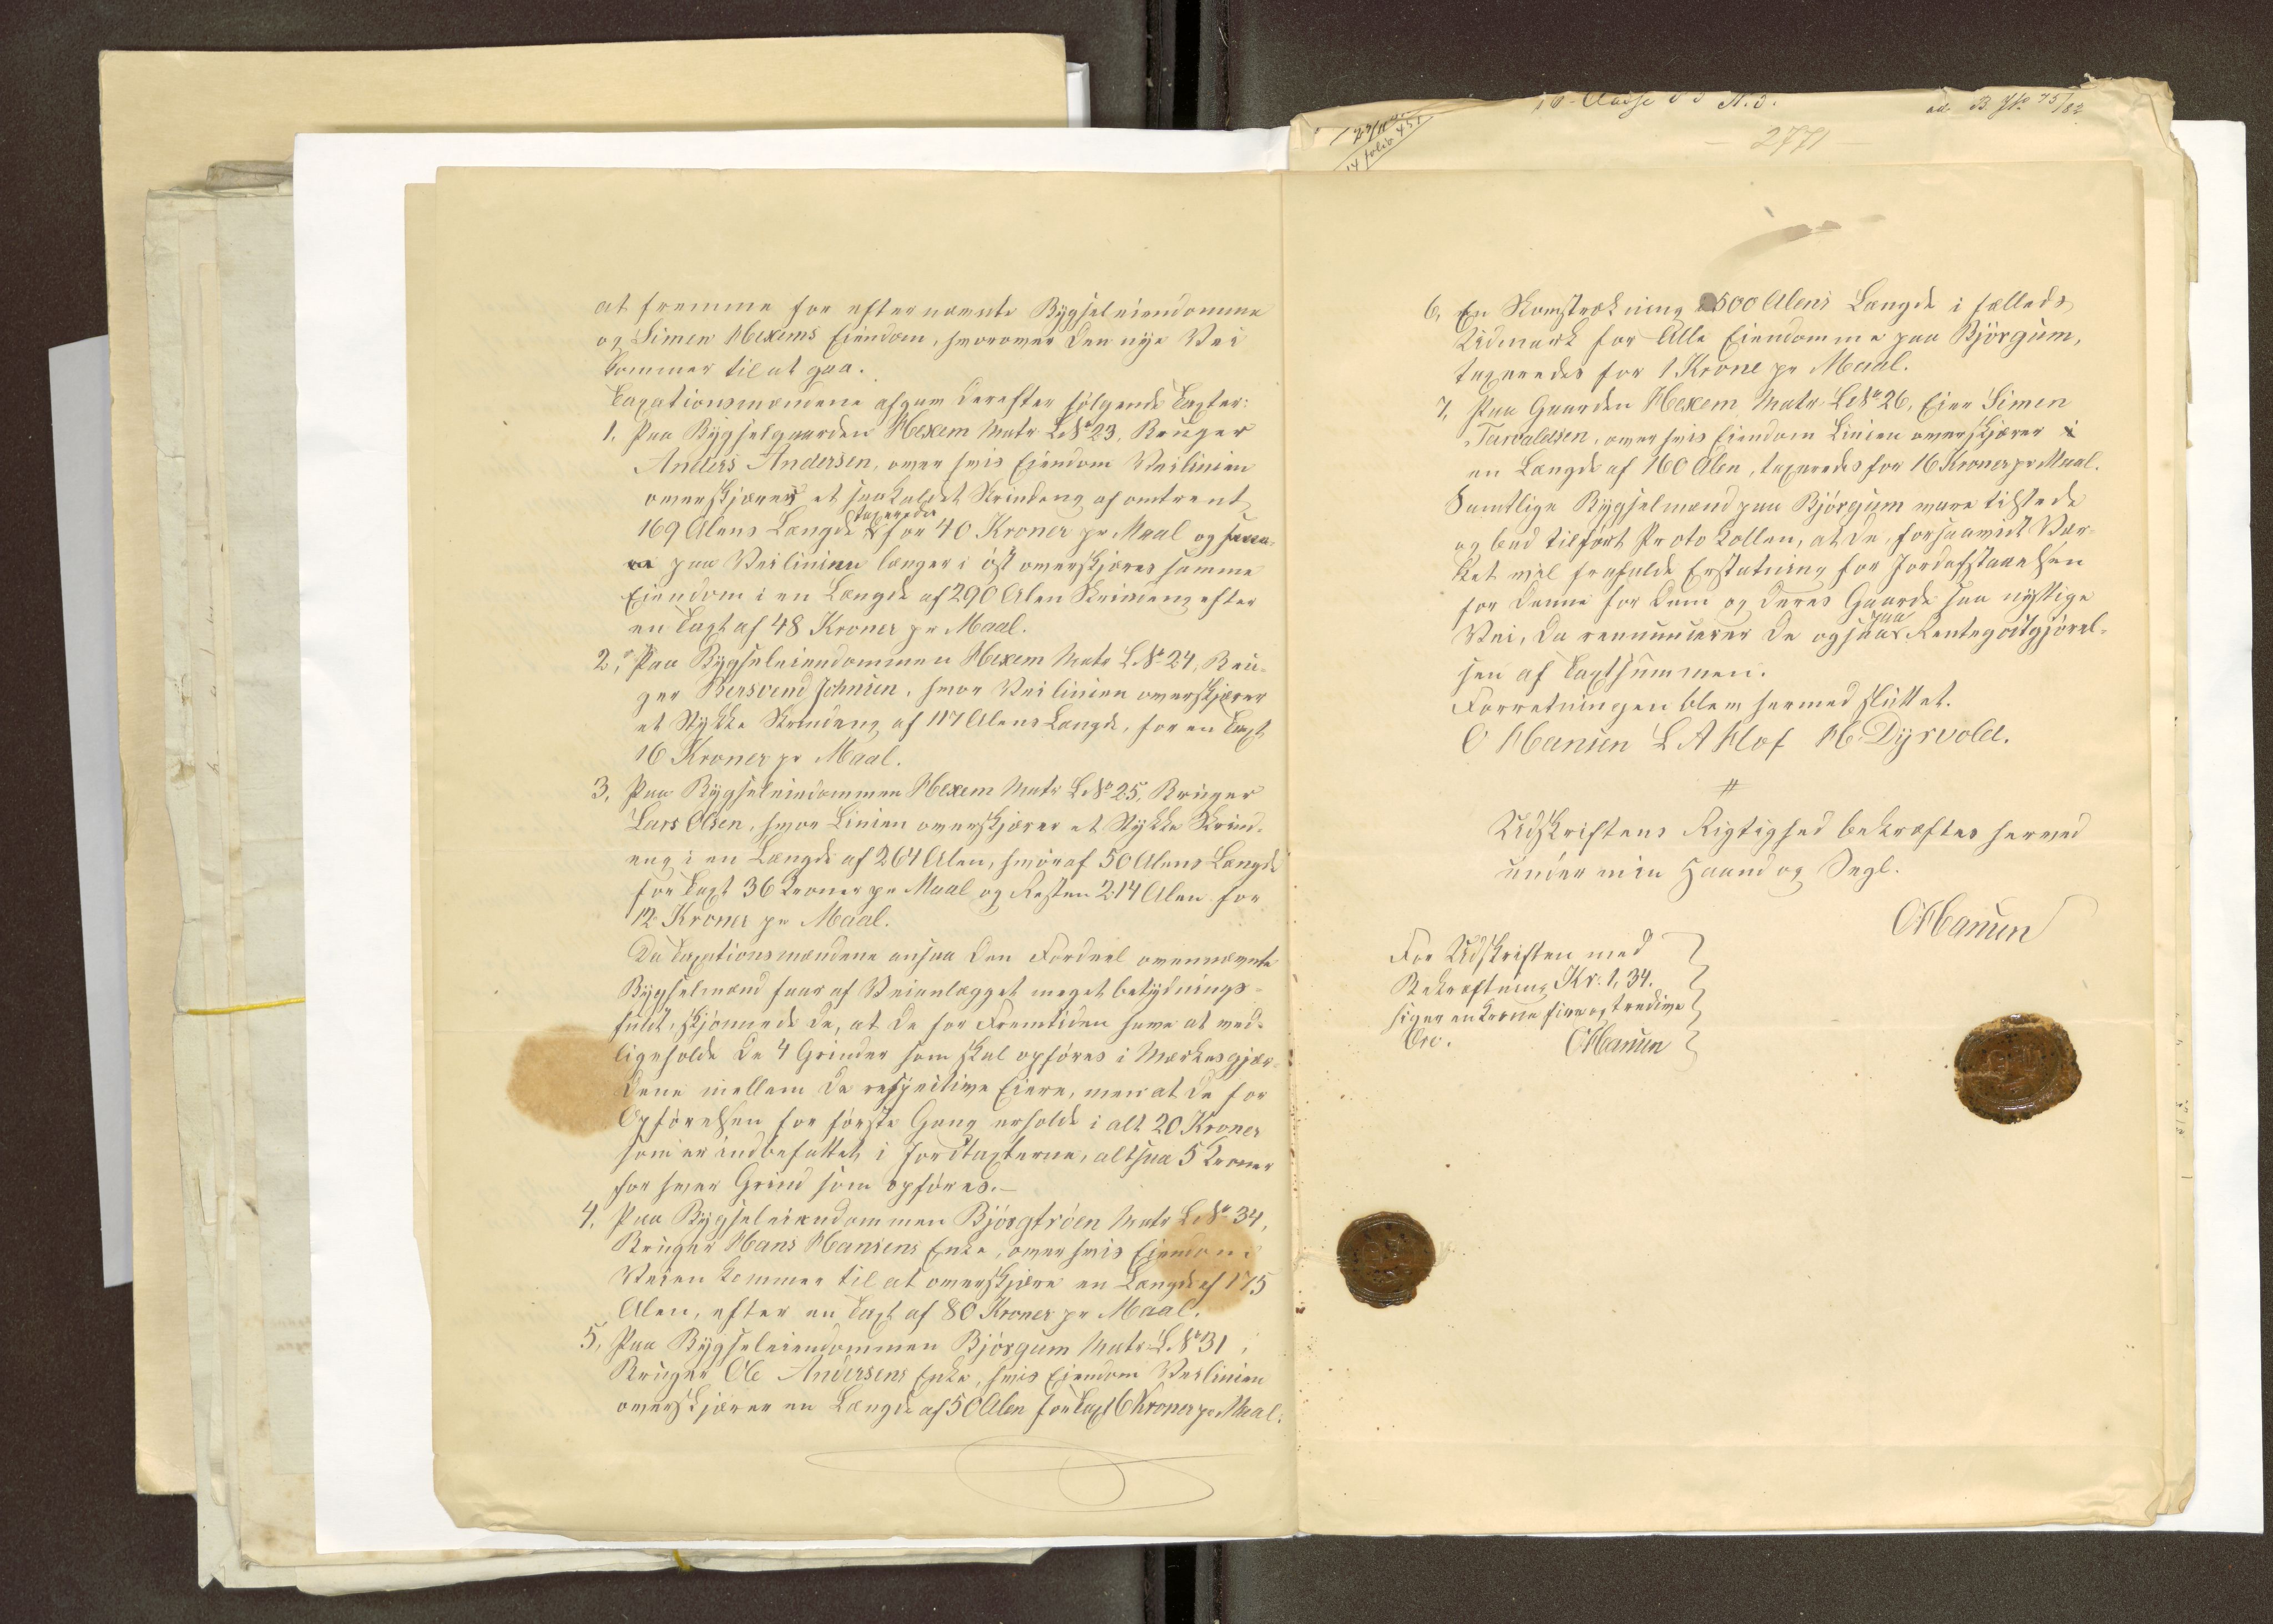 at fremme for efternævnte Bygseleiendomme
og Simen Hexems Eiendom, hvorover den nye Vei
kommer til at gaa.
Taxationsmændene afgav derefter følgende Taxter:
1. Paa Bygselgaarden Hexem Matr L. No 23, Bruger
Anders Andersen, over hvis Eiendom Veilinien
overskjærer et saakaldet Strindeng af omtrent
taxeredes
169 Alens Længde for 40 Kroner pr Maal og
paa Veilinien længer i øst overskjæres samme
Eiendom i en Længde af 290 Alen Strindeng efter
en Taxt af 48 Kroner pr Maal.
2, Paa Bygseleiendommen Hexem Matr L. No 24, Bru-
ger Bersvend Johnsen, hvor Veilinien overskjærer
et Stykke Strindeng af 117 Alens Længde, for en Taxt
16 Kroner pr Maal.
3, Paa Bygseleiendommen Hexem Matr L. No 25, Bruger
Lars Olsen, hvor Linien overskjærer et Stykke Strind-
eng i en Længde af 264 Alen, hvoraf 50 Alens Længde
for Taxt 36 Kroner pr Maal og Resten 214 Alen for
12 Kroner pr Maal.
Da Taxationsmændene ansaa den Fordeel ovennævnte
Bygselmænd faar af Veianlægget meget betydnings-
fuldt, skjønnede de, at de for Fremtiden have at ved-
ligeholde de 4 Grinder som skal opføres i Merkesgjær-
dene mellem de respective Eiere, men at de for
Opførelsen for første Gang erholde i alt 20 Kroner
som er indbefattet i Jordtaxterne, altsaa 5 Kroner
for hver Grind som opføres.-
4, Paa Bygseleiendommen Bjørgtrøen Matr L. No 34,
Bruger Hans Hansens Enke, over hvis Eiendom
Veien kommer til at overskjære en Længde af 175
Alen, efter en Taxt af 80 Kroner pr Maal.
5, Paa Bygseleiendommen Bjørgum Matr L. No 31,
Bruger Ole Andersens Enke, hvis Eiendom Veilinien
overskjærer en Længde af 50 Alen for Taxt 6 Kroner pr Maal.
ad. B. No 75/82
2771
6, En Komstrækning 2500 Alens Længde i fælleds
Udmark for Alle Eiendomme paa Bjørgum,
taxeredes for 1 Krone pr Maal.
7, Paa Gaarden Hexem Matr L. No 26, Eier Simen
Tarvaldsen, over hvis Eiendom Linien overskjærer i
en Længde af 160 Alen, taxeredes for 16 Kroner pr Maal.
Samtlige Bygselmænd paa Bjørgum vare tilstede
og bad tilført Protokollen, at de, forsaavidt Vær-
ket vil frafalde Erstatning for Jordafstaaelsen
for denne for dem og deres Gaarde saa nyttige
paa
Vei, da renuncerer de ogsaa Rentegodtgjørel-
sen af Taxtsummen.
Forretningen blev hermed sluttet.
O Hansen L A Hof H. Dyrvold.
#
Udskriftens Rigtighed bekræftes herved
under min Haand og Segl.
O Hansen
For Udskriften med
Bekræftning Kr. 1, 34.
siger en Krone fire og tredive
Øre. O Hansen